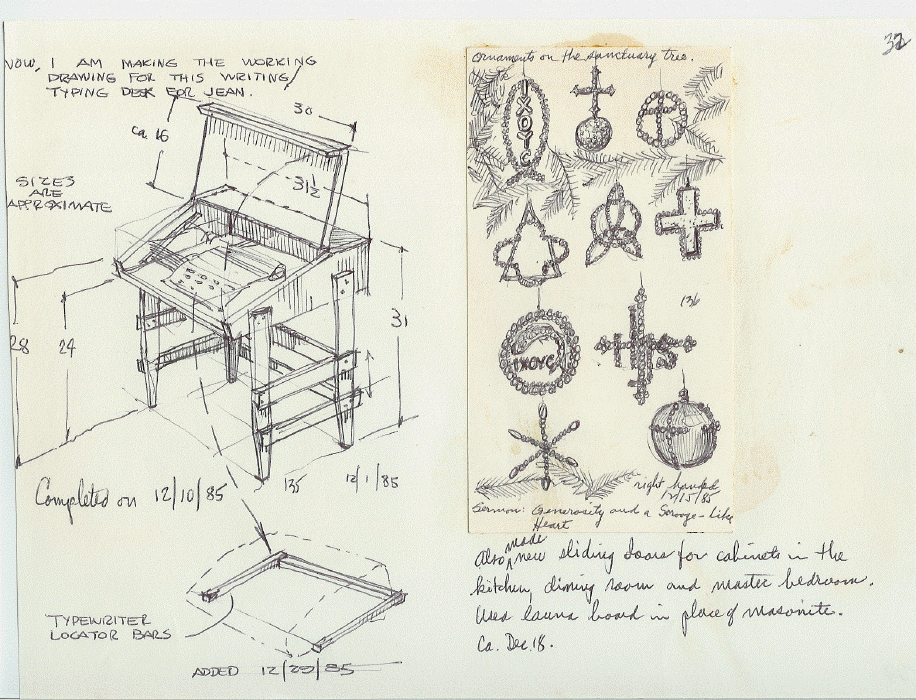 32
NOW, I AM MAKING THE WORKING
DRAWING FOR THIS WRITING/
TYPING DESK FOR JEAN.
30
ca 16
31 1/2
SIZES
ARE
APPROXIMATE
31
28
24
Completed on 12/10/85
135
12/1/85
TYPEWRITER
LOCATOR BARS
ADDED 12/29/85
Ornaments on the sanctuary tree.
ΙΧΟΥC
136
ΙΧΟΥC
right handed
12/15/85
Sermon: Generosity and a Scrooge-Like
Heart
Also made new sliding doors for cabinets in the
kitchen, dining room and master bedroom.
Used launa board in place of masonite.
Ca. Dec. 18.